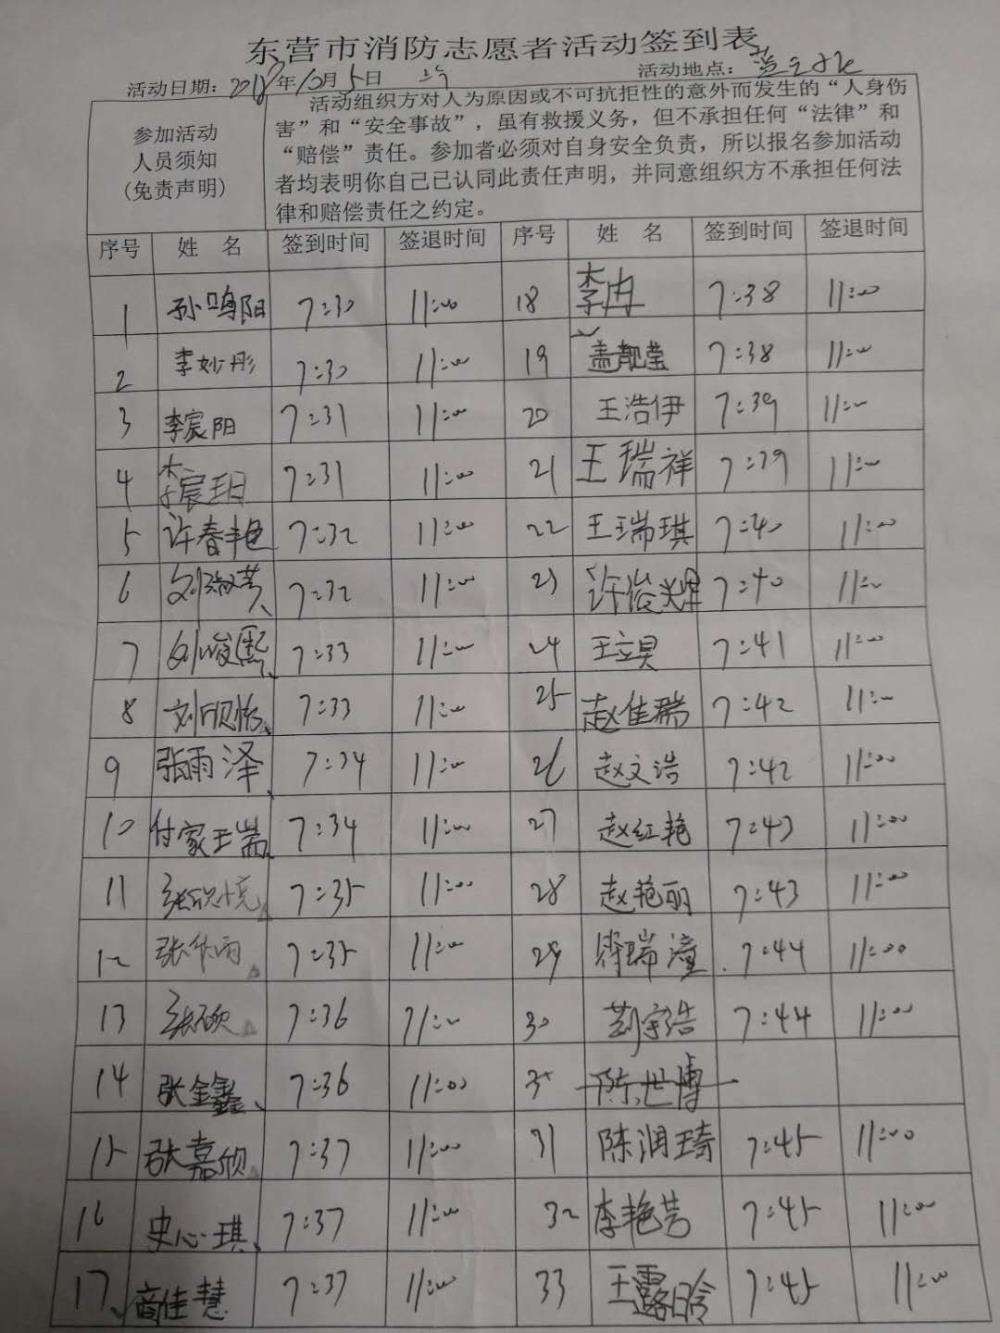 东营市消防志愿者活动签到表
活动日期：2018年10月5日 活动地点：
参加活动
人员须知
(免责声明)
活动组织方对人为原因或不可抗拒性的意外而发生的“人身伤
害”和“安全事故”，虽有救援义务，但不承担任何“法律”和
“赔偿”责任。参加者必须对自身安全负责，所以报名参加活动
者均表明你自己已认同此责任声明，并同意组织方不承担任何法
律和赔偿责任之约定。
序号 姓 名 签到时间 签退时间 序号 姓 名 签到时间 签退时间
1 孙鸣阳 7:30 11:00 18 李冉 7:38 11:00
2 李妙彤 7:30 11:00 19 盖靓莹 7:38 11:00
3 李宸阳 7:31 11:00 20 王浩伊 7:39 11:00
4 李宸玥 7:31 11:00 21 王瑞祥 7:39 11:00
5 许春艳 7:32 11:00 22 王瑞琪 7:40 11:00
6 刘淑芳 7:32 11:00 23 许俊 7:40 11:00
7 刘峻熙 7:33 11:00 24 王立昊 7:41 11:00
8 刘欣怡 7:33 11:00 25 赵佳瑞 7:42 11:00
9 张雨泽 7:34 11:00 26 赵文浩 7:42 11:00
10 付家瑞 7:34 11:00 27 赵红艳 7:43 11:00
11 7:35 11:00 28 赵艳丽 7:43 11:00
12 7:35 11:00 29 瑞潼 7:44 11:00
13 张硕 7:36 11:00 30 宇浩 7:44 11:00
14 张金鑫 7:36 11:00 陈世博
15 张嘉欣 7:37 11:00 31 陈润琦 7:45 11:00
16 史心琪 7:37 11:00 32 李艳芳 7:45 11:00
17 商佳慧 7:37 11:00 33 王露晗 7:45 11:00